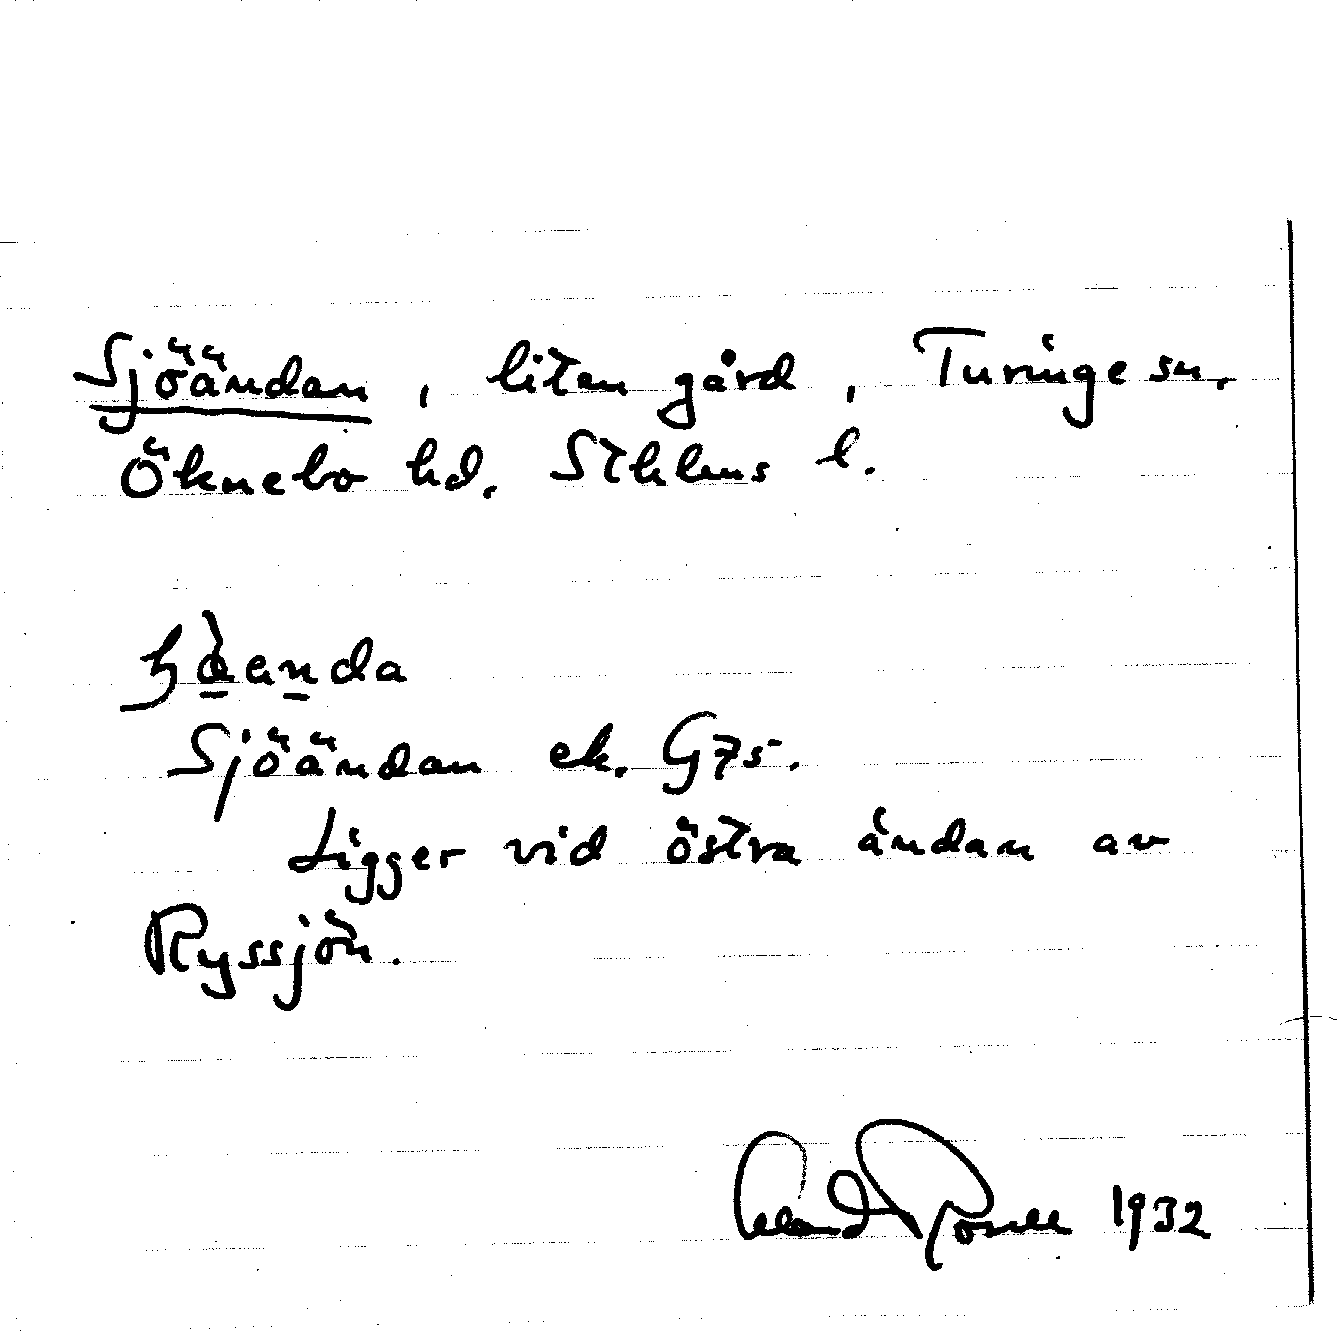 Sjöändan, liten gård, Turinge sn.
Öknebo hd. Sthlms l.
Sjöändan ek. G75.
Ligger vid östra ändan av
Ryssjön.
1932